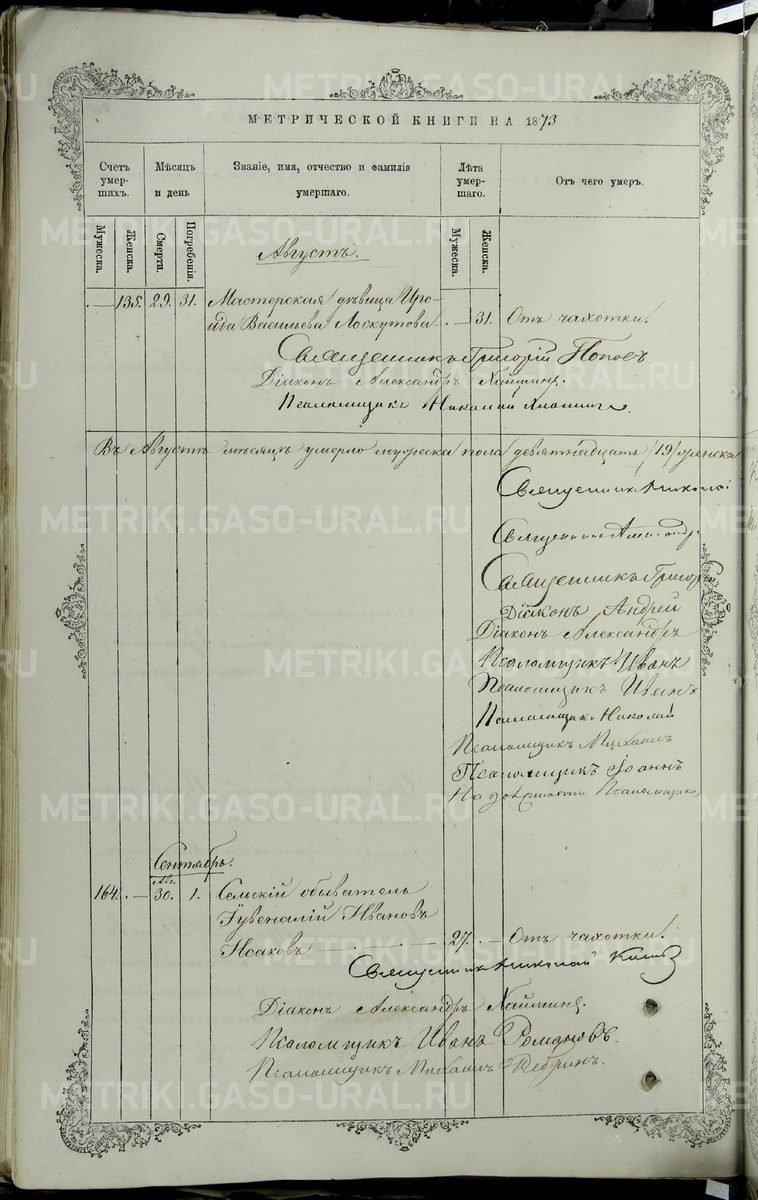 МЕТРИЧЕСКОЙ КНИГИ НА 1873
Счетъ умершихъ.
Мѣсяцъ и день
Званіе, имя, отчество и фамилія умершаго.
Лѣта умершаго.
Отъ чего умеръ.
Мужеска. Женска. Смерти. Погребенія. Мужеска. Женска.
Августъ.
— 135. 29. 31. Мастерская дѣвица Иро-
ида Васильева Лоскутова. — 31. Отъ чахотки.
Священникъ Григорій Поповъ
Діаконъ Александръ
Псаломщикъ Николай
Въ Августѣ мѣсяцѣ умерло мужеска пола девятнадцать /19/ женска
Священникъ Николай
Священникъ Александръ
Священникъ Григорій
Діаконъ Андрей
Діаконъ Александръ
Псаломщикъ Иванъ
Псаломщикъ Иванъ
Псаломщикъ Николай
Псаломщикъ Михаилъ
Псаломщикъ Іоаннъ
На должности Псаломщика
Сентябрь.
Ав.
164. — 30. 1. Сельскій обыватель
Іувеналій Ивановъ
Исаковъ 27. — Отъ чахотки.
Священникъ Николай
Діаконъ Александръ
Псаломщикъ Иванъ Романовъ.
Псаломщикъ Михаилъ
METRIKI.GASO-URAL.RU